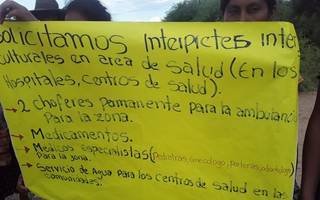 Solicitamos Interpretes Inte
culturales en area de salud (En los
Hospitales, Centros de Salud).
→ 2 choferes permanente para la ambulancia
Para la zona.
→ Medicamentos.
→ Médicos especialistas (pediatras, Ginecologo, parteras, odontologo)
Para la zona.
→ Servicio de Agua para los centros de salud en las
comunidades.